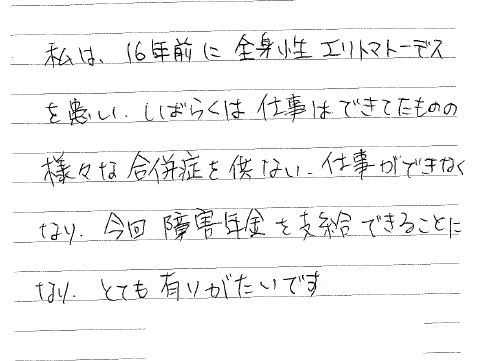 私は、16年前に全身性エリトマトーデス
を患い、しばらくは仕事はできてたものの
様々な合併症を供ない、仕事ができなく
なり、今回障害年金を支給できることに
なり、とても有りがたいです